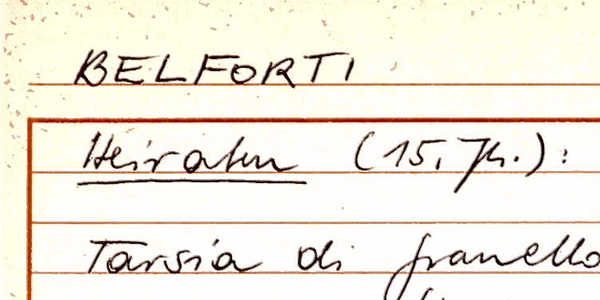 BELFORTI
Heiraten (15. Jh.):
Tarsia di